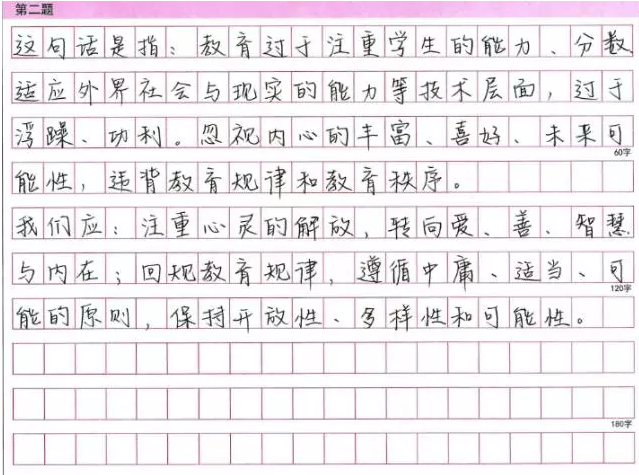 第二题
这句话是指：教育过于注重学生的能力、分数
适应外界社会与现实的能力等技术层面，过于
浮躁、功利。忽视内心的丰富、喜好、未来可
60字
能性，违背教育规律和教育秩序。
我们应：注重心灵的解放，转向爱、善、智慧
与内在；回规教育规律，遵循中庸、适当、可
120字
能的原则，保持开放性、多样性和可能性。
180字